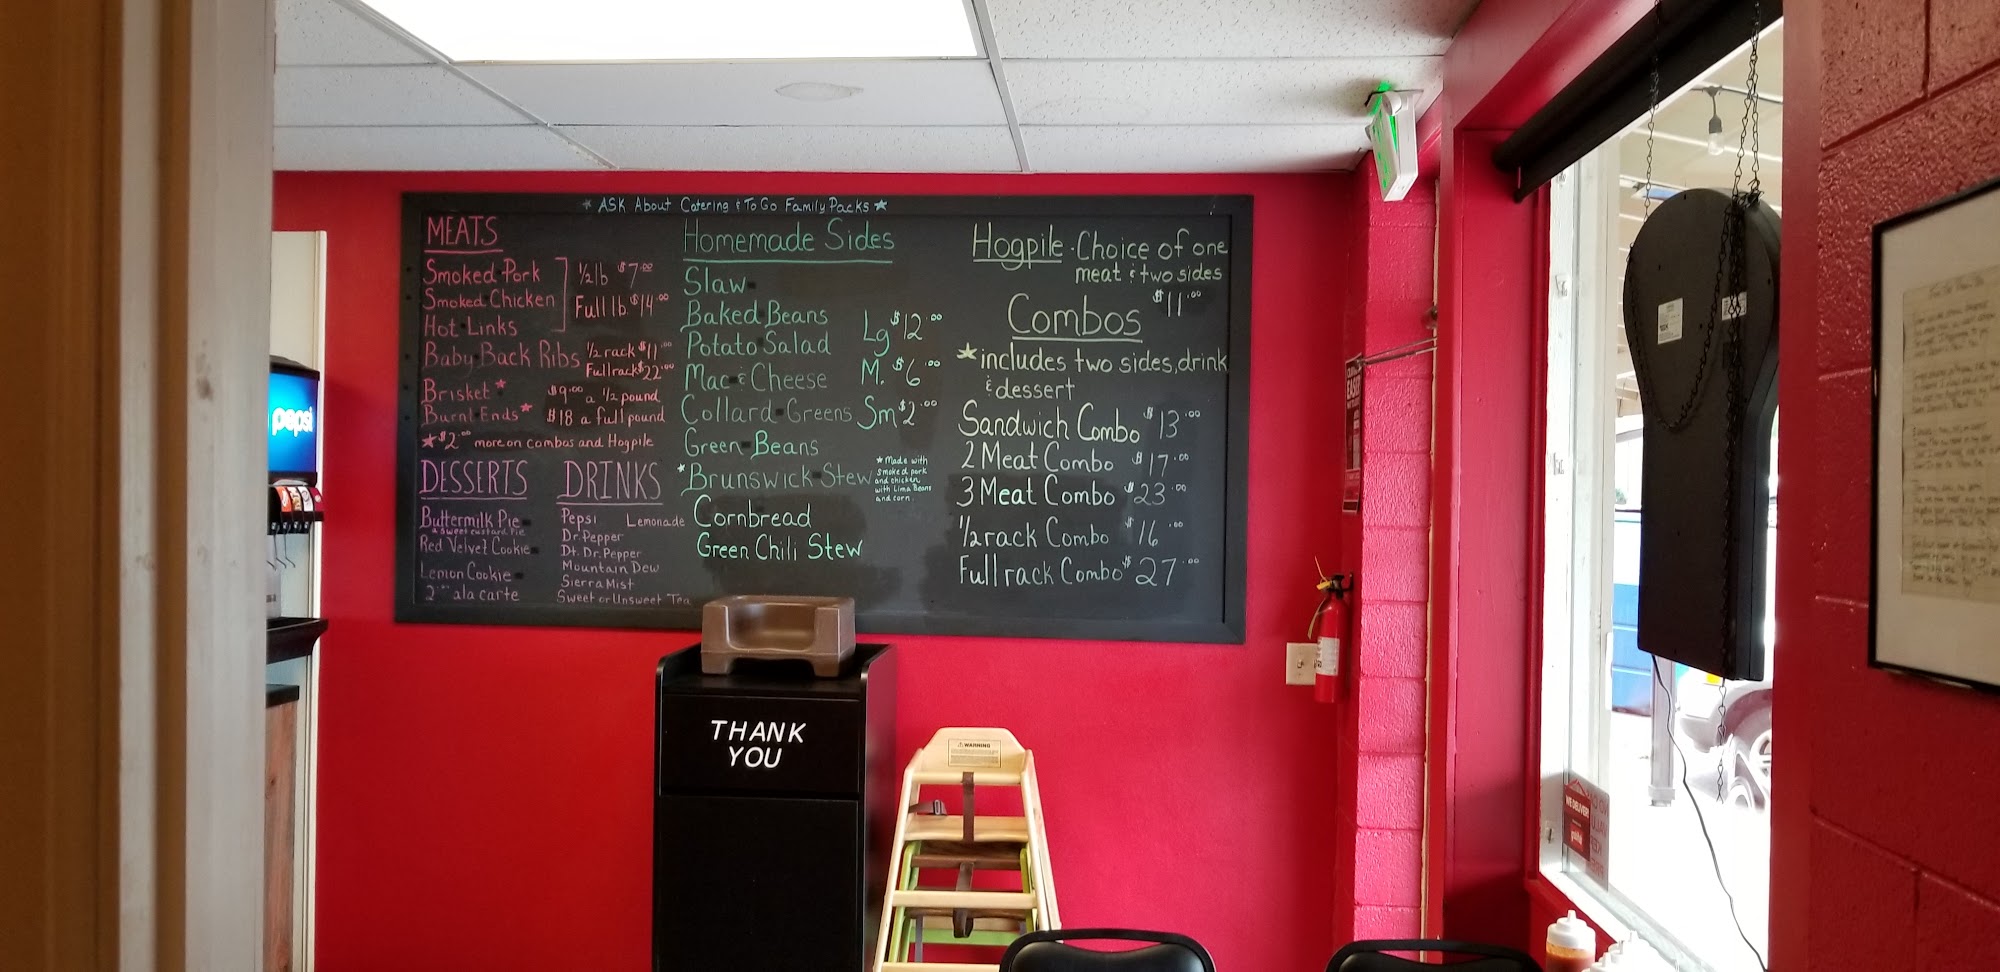 ★ ASK About Catering & To Go Family Packs ★
MEATS
Smoked Pork
Smoked Chicken
Hot Links
1/2 lb $7.00
Full lb. $14.00
Baby Back Ribs
1/2 rack $11.00
Full rack $22.00
Brisket ★ $9.00 a 1/2 pound
Burnt Ends ★ $18 a full pound
★ $2.00 more on combos and Hogpile
DESSERTS
Buttermilk Pie
a sweet custard pie
Red Velvet Cookie
Lemon Cookie
2.00 ala carte
DRINKS
Pepsi Lemonade
Dr. Pepper
Dt. Dr. Pepper
Mountain Dew
Sierra Mist
Sweet or Unsweet Tea
Homemade Sides
Slaw
Baked Beans
Potato Salad
Mac & Cheese
Collard Greens
Green Beans
★ Brunswick Stew
Cornbread
Green Chili Stew
Lg $12.00
M. $6.00
Sm $2.00
★ Made with
smoked pork
and chicken
with Lima Beans
and corn.
Hogpile · Choice of one
meat & two sides
$11.00
Combos
★ includes two sides, drink
& dessert
Sandwich Combo $13.00
2 Meat Combo $17.00
3 Meat Combo $23.00
1/2 rack Combo $16.00
Full rack Combo $27.00
pepsi
THANK
YOU
WARNING
WE DELIVER!